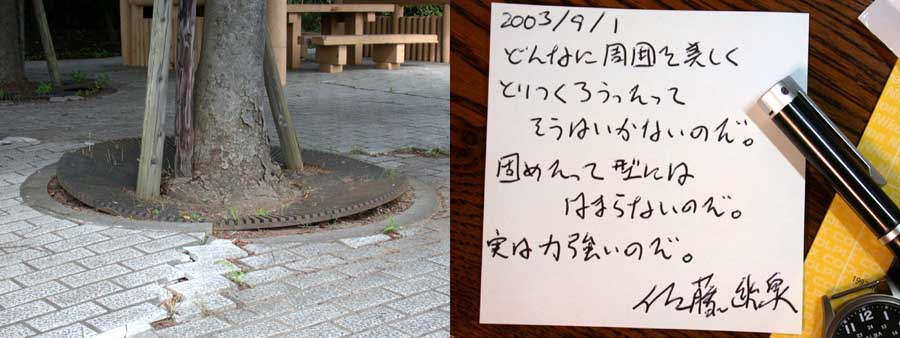 2003/9/1
どんなに周囲を美しく
とりつくろうったって
そうはいかないのだ。
固めたって型には
はまらないのだ。
実は力強いのだ。
佐藤
ALBA